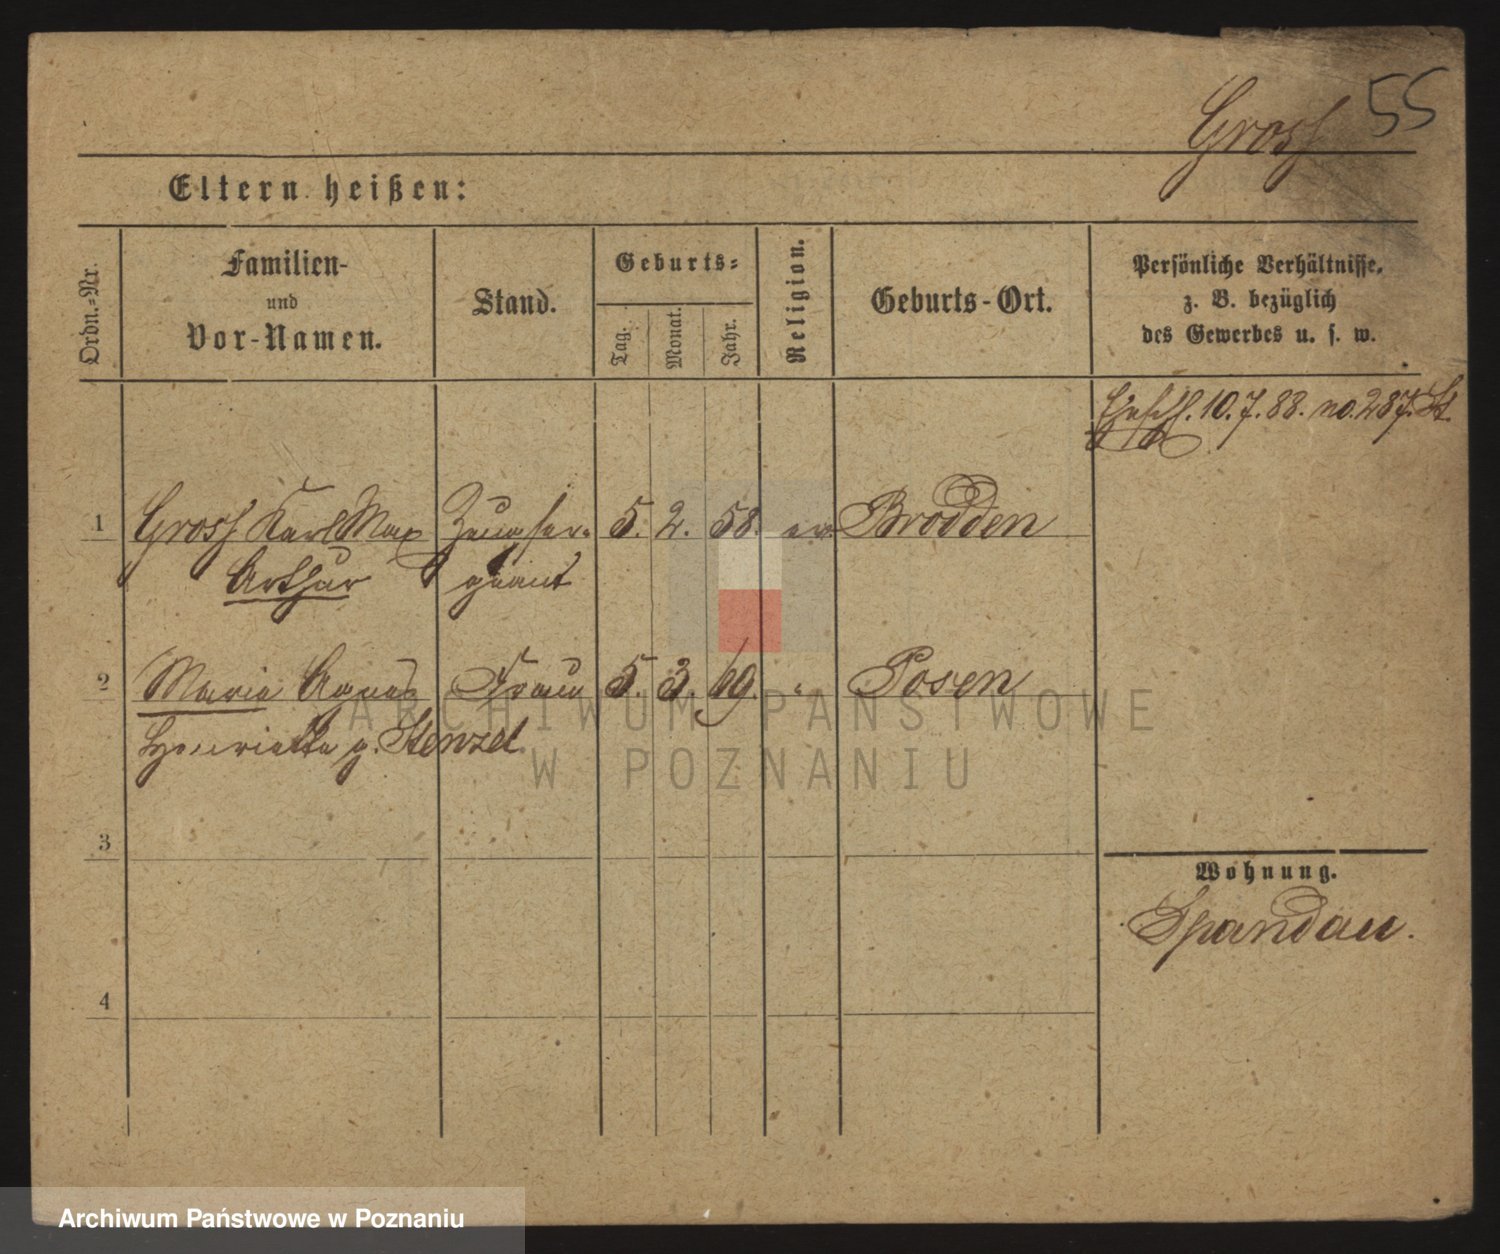 55
Gross
Eltern heißen:
Ordn.=Nr.
Familien-
und
Vor-Namen.
Stand.
Geburts=
Tag.
Monat.
Jahr.
Religion.
Geburts-Ort.
Persönliche Verhältnisse,
z. B. bezüglich
des Gewerbes u. s. w.
Ehesch. 10.7.88. no. 287. St
1 Gross Karl Max Zeugser- 5. 2. 58. ev. Brodden
Arthur geant
2 Maria Agnes Frau 5. 3. 69. " Posen
Henriette g. Stenzel
3
Wohnung.
Spandau.
4
ARCHIWUM PAŃSTWOWE
W POZNANIU
Archiwum Państwowe w Poznaniu